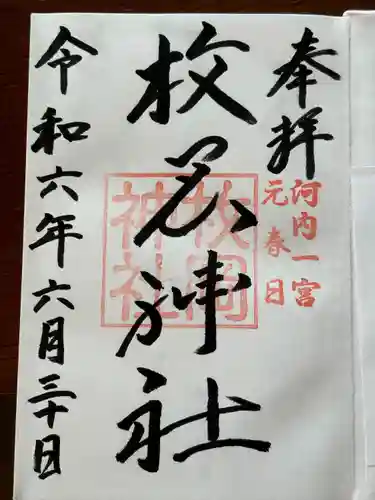 奉拝
河内一宮
元春日
枚岡神社
枚岡神社
令和六年六月三十日